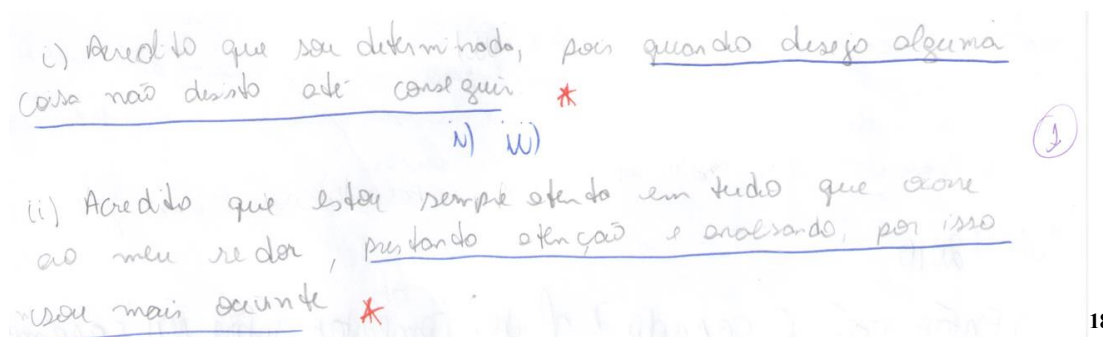 i) Acredito que sou determinado, pois quando desejo alguma
coisa não desisto até conseguir *
iv) iii)
1
ii) Acredito que estou sempre atento em tudo que ocorre
ao meu redor, prestando atenção e analisando, por isso
sou mais ouvinte *
18